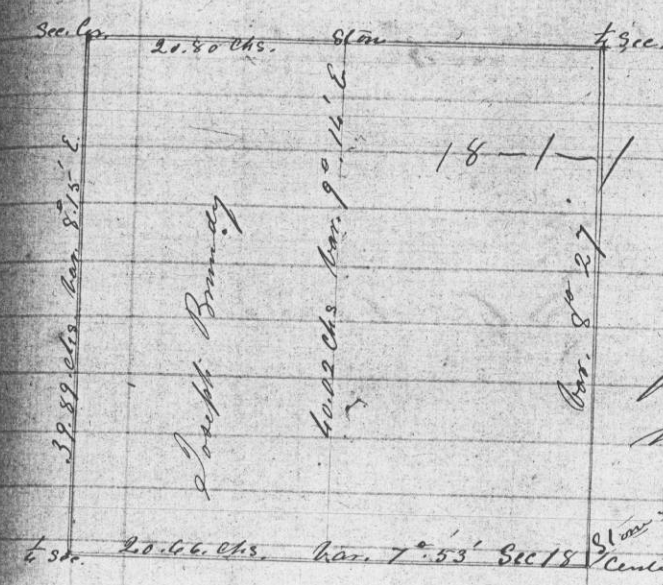 Sec. Cor. 20.80 Chs. Ston ¼ Sec.
39.89. Chs Var. 8°.15' E.
Joseph Brundy
40.02 Chs Var. 9°. 14' E
18-1-1
Var. 8° 27
¼ Sec. 20.66. Chs. Var. 7°.53' Sec 18
Ston
Cent